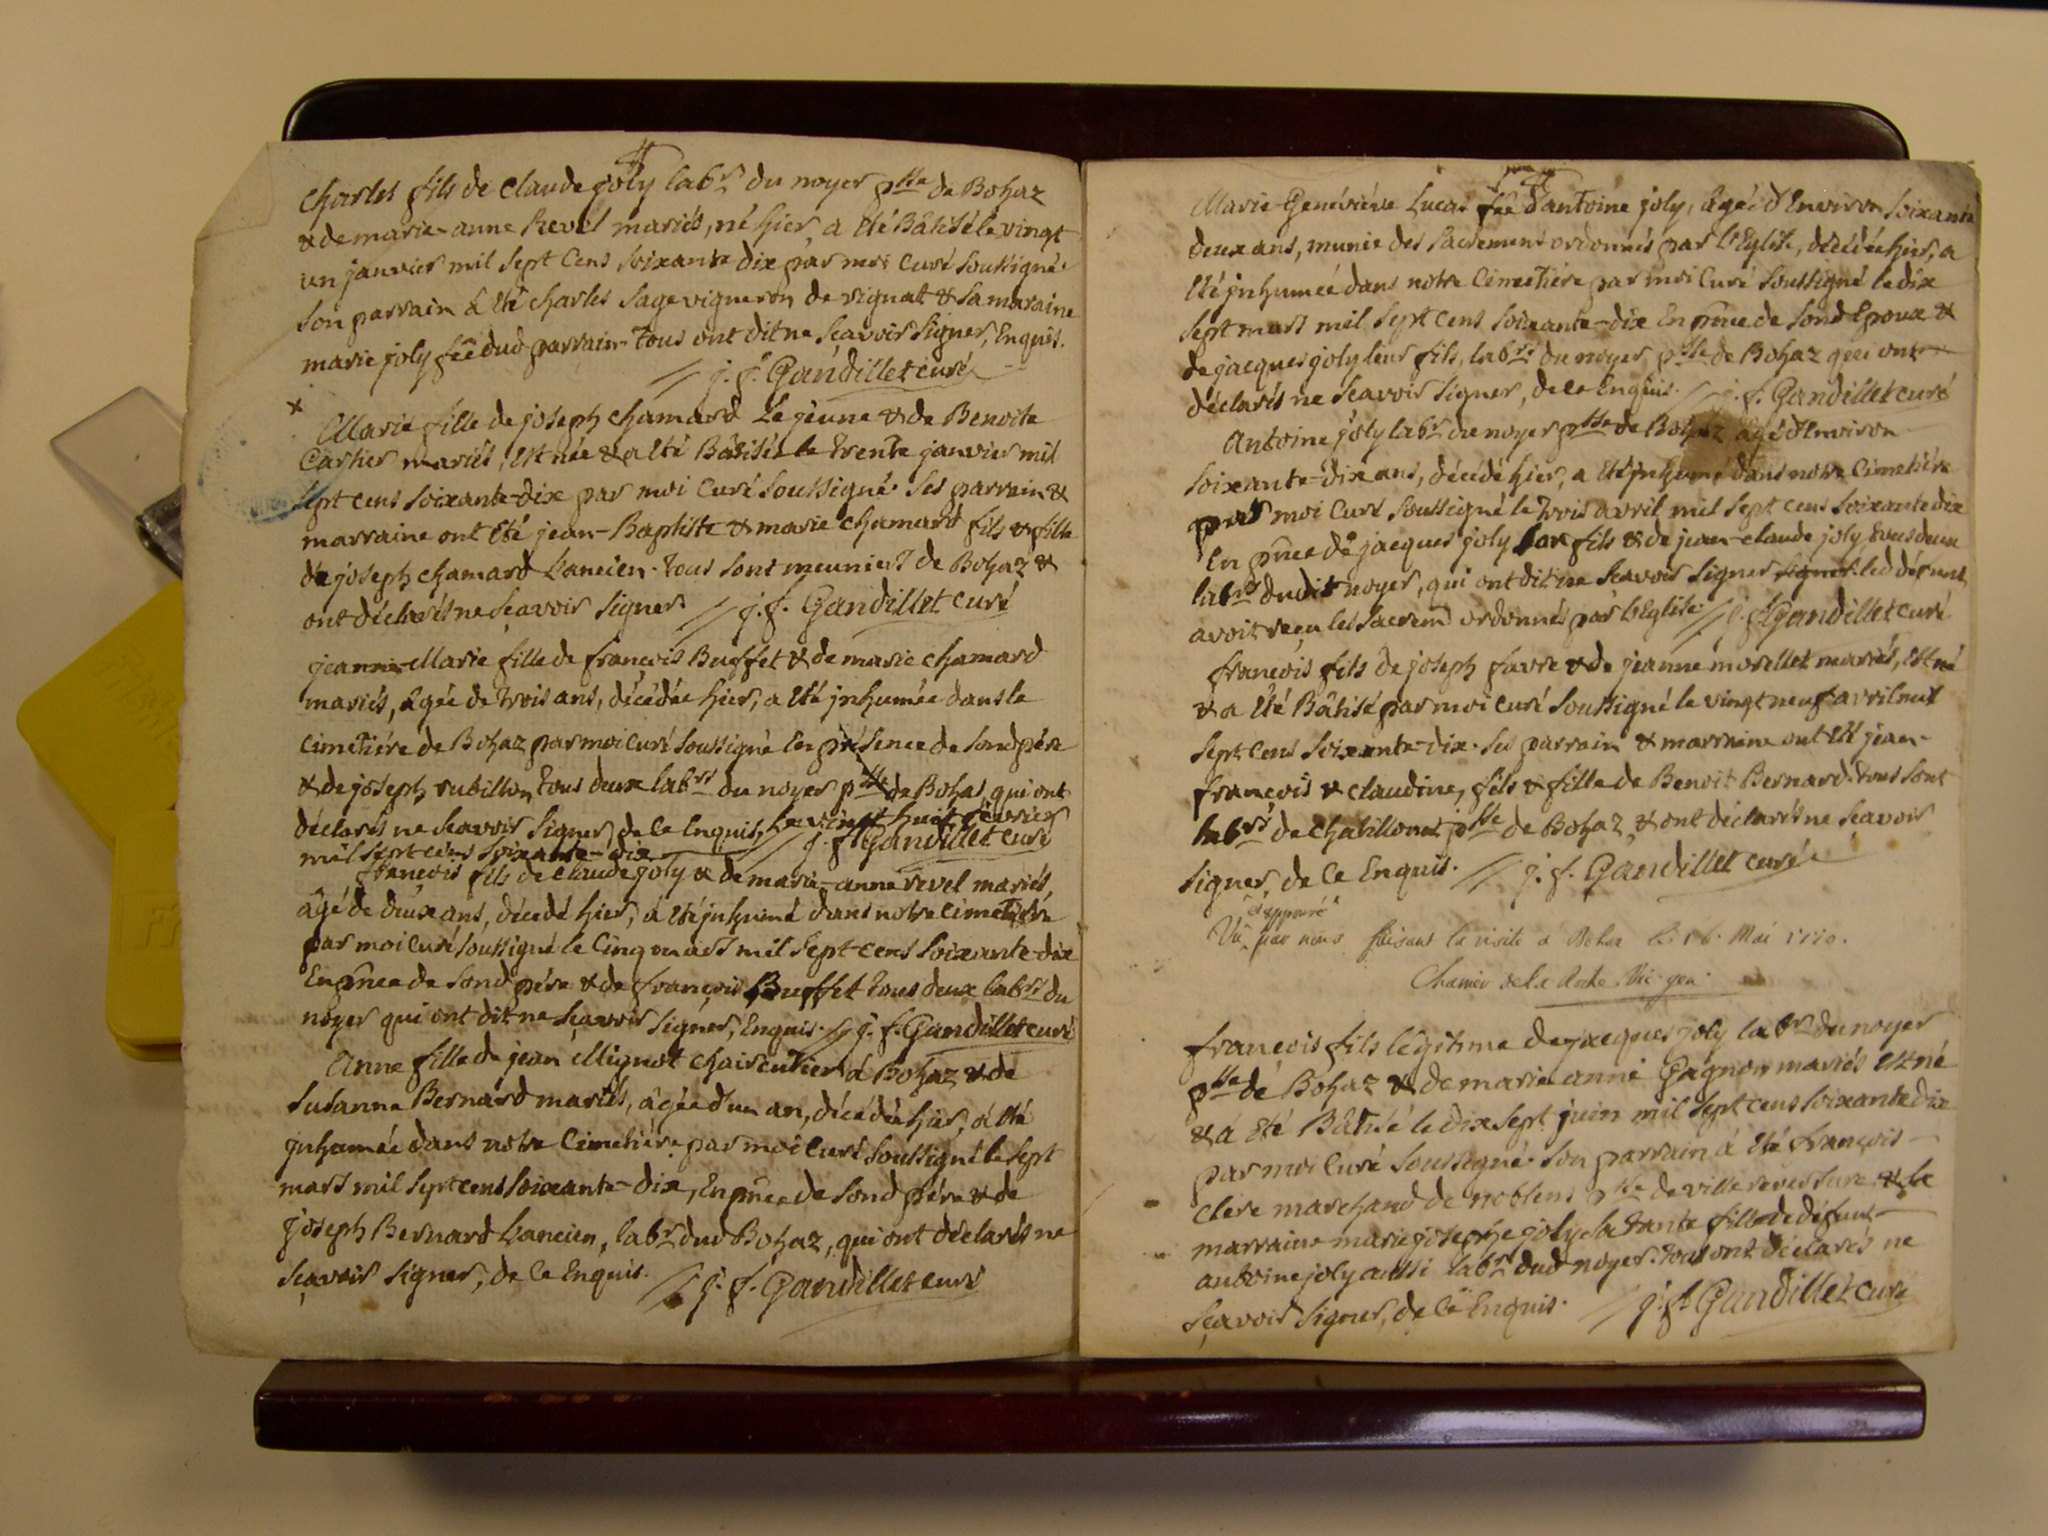 Charles fils de Claude joly labr. du noyer psse de Bohaz
& de marie-anne Revel mariés, né hier, a Eté Bâtisé le vingt
un janvier mil sept Cens soixante dix par moi Curé soussigné.
son parrain a Eté charles sage vigneron de vignat & sa maraine
marie joly fēe dud parrain. tous ont dit ne sçavoir signer, Enquis.
j. f. Gandillet curé
Marie fille de joseph Chamard Le jeune & de Benoite
Cartier mariés, Est née & a Eté Bâtisée le trente janvier mil
sept cens soixante-dix par moi Curé soussigné. Ses parrain &
marraine ont Eté jean-Baptiste & marie Chamard fils & fille
de joseph chamard L'ancien. tous sont meuniers de Bohaz &
ont déclarés ne sçavoir signer. j. f. Gandillet curé
jeanne-Marie fille de françois Buffet & de marie Chamard
mariés, agée de trois ans, décédée hier, a Eté jnhumée dans le
Cimetiére de Bohaz par moi Curé soussigné En présence de sond pére
& de joseph rubillon tous deux labrs du noyer psse de Bohas, qui ont
déclarés ne sçavoir signer, de ce Enquis, Le vingt huit février
mil sept cens soixante-dix j. f. Gandillet curé
françois fils de Claude joly & de marie-anne revel mariés,
âgé de deux ans, décedé hier, a Eté jnhumé dans notre Cimetiére
par moi Curé soussigné le Cinq mars mil sept-cens soixante-dix
En pñce de sond pére & de françois Buffet tous deux labrs du
noyer qui ont dit ne sçavoir signer, Enquis. j. f. Gandillet curé
Anne fille de jean Mignot chaircutier à Bohaz & de
Susanne Bernard mariés, âgée d'un an, décédée hier, a Eté
jnhumée dans notre Cimetiére par moi Curé soussigné le sept
mars mil sept cens soixante-dix, En pñce de sond pére & de
joseph Bernard L'ancien, labr dud Bohaz, qui ont déclarés ne
sçavoir signer, de ce Enquis. j. f. Gandillet curé
Marie-Genéviéve Lucas fēe d'antoine joly, agée d'Environ soixante
deux ans, munie des sacremens ordonnés par l'Eglise, décédée hier, a
Eté jnhumée dans notre Cimetiére par moi Curé soussigné le dix
sept mars mil sept cens soixante-dix En pñce de sond Epoux &
de jacques joly leur fils, labrs du noyer psse de Bohaz qui ont
déclarés ne sçavoir signer, de ce Enquis. j. f. Gandillet curé
Antoine joly labr. du noyer psse de Bohaz agé d'Environ
soixante-dix ans, décédé hier, a Eté jnhumé dans notre Cimetiére
par moi Curé soussigné le trois avril mil sept cens soixante dix
En pñce de jacques joly son fils & de jean-claude joly tous deux
labrs dudit noyer, qui ont dit ne sçavoir signer signer. led défunt
avoit reçu les sacrem ordonnés par l'Eglise. j. f. Gandillet curé
françois fils de joseph favre & de jeanne morellet mariés, Est né
& a Eté Bâtisé par moi Curé soussigné le vingt neuf avril mil
sept cens soixante-dix. ses parrain & marraine ont Eté jean-
françois & claudine, fils & fille de Benoit Bernard. tous sont
labrs de chatillonet psse de Bohaz, & ont déclarés ne sçavoir
signer, de ce Enquis. j. f. Gandillet curé
Vû & approuvé par nous faisant la visite a Bohas le 16. Mai 1770.
françois fils légitime de jacques joly labr du noyer
psse de Bohaz & de marie anne Gagnon mariés Est né
& a Eté Bâtisé le dix sept juin mil sept cens soixante dix
par moi Curé soussigné. son parrain a Eté françois
Clerc marchand de noblens psse de villereversure & la
marraine marie josephe joly sa tante fille de défunt
antoine joly aussi labr dud noyer. tous ont déclarés ne
sçavoir signer, de ce Enquis. j. f. Gandillet curé